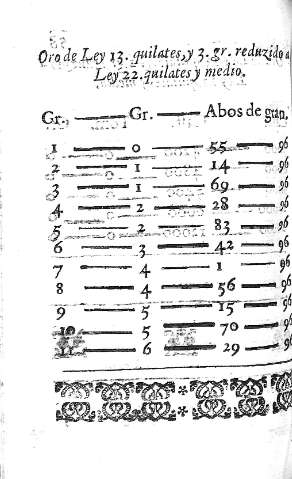 Oro de Ley 13. quilates, y 3. gr. reduzido a
Ley 22. quilates y medio.
Gr. — Gr. — Abos de gran.
1 — 0 — 55 — 96
2 — 1 — 14 — 96
3 — 1 — 69 — 96
4 — 2 — 28 — 96
5 — 2 — 83 — 96
6 — 3 — 42 — 96
7 — 4 — 1 — 96
8 — 4 — 56 — 96
9 — 5 — 15 — 96
10 — 5 — 70 — 96
11 — 6 — 29 — 96